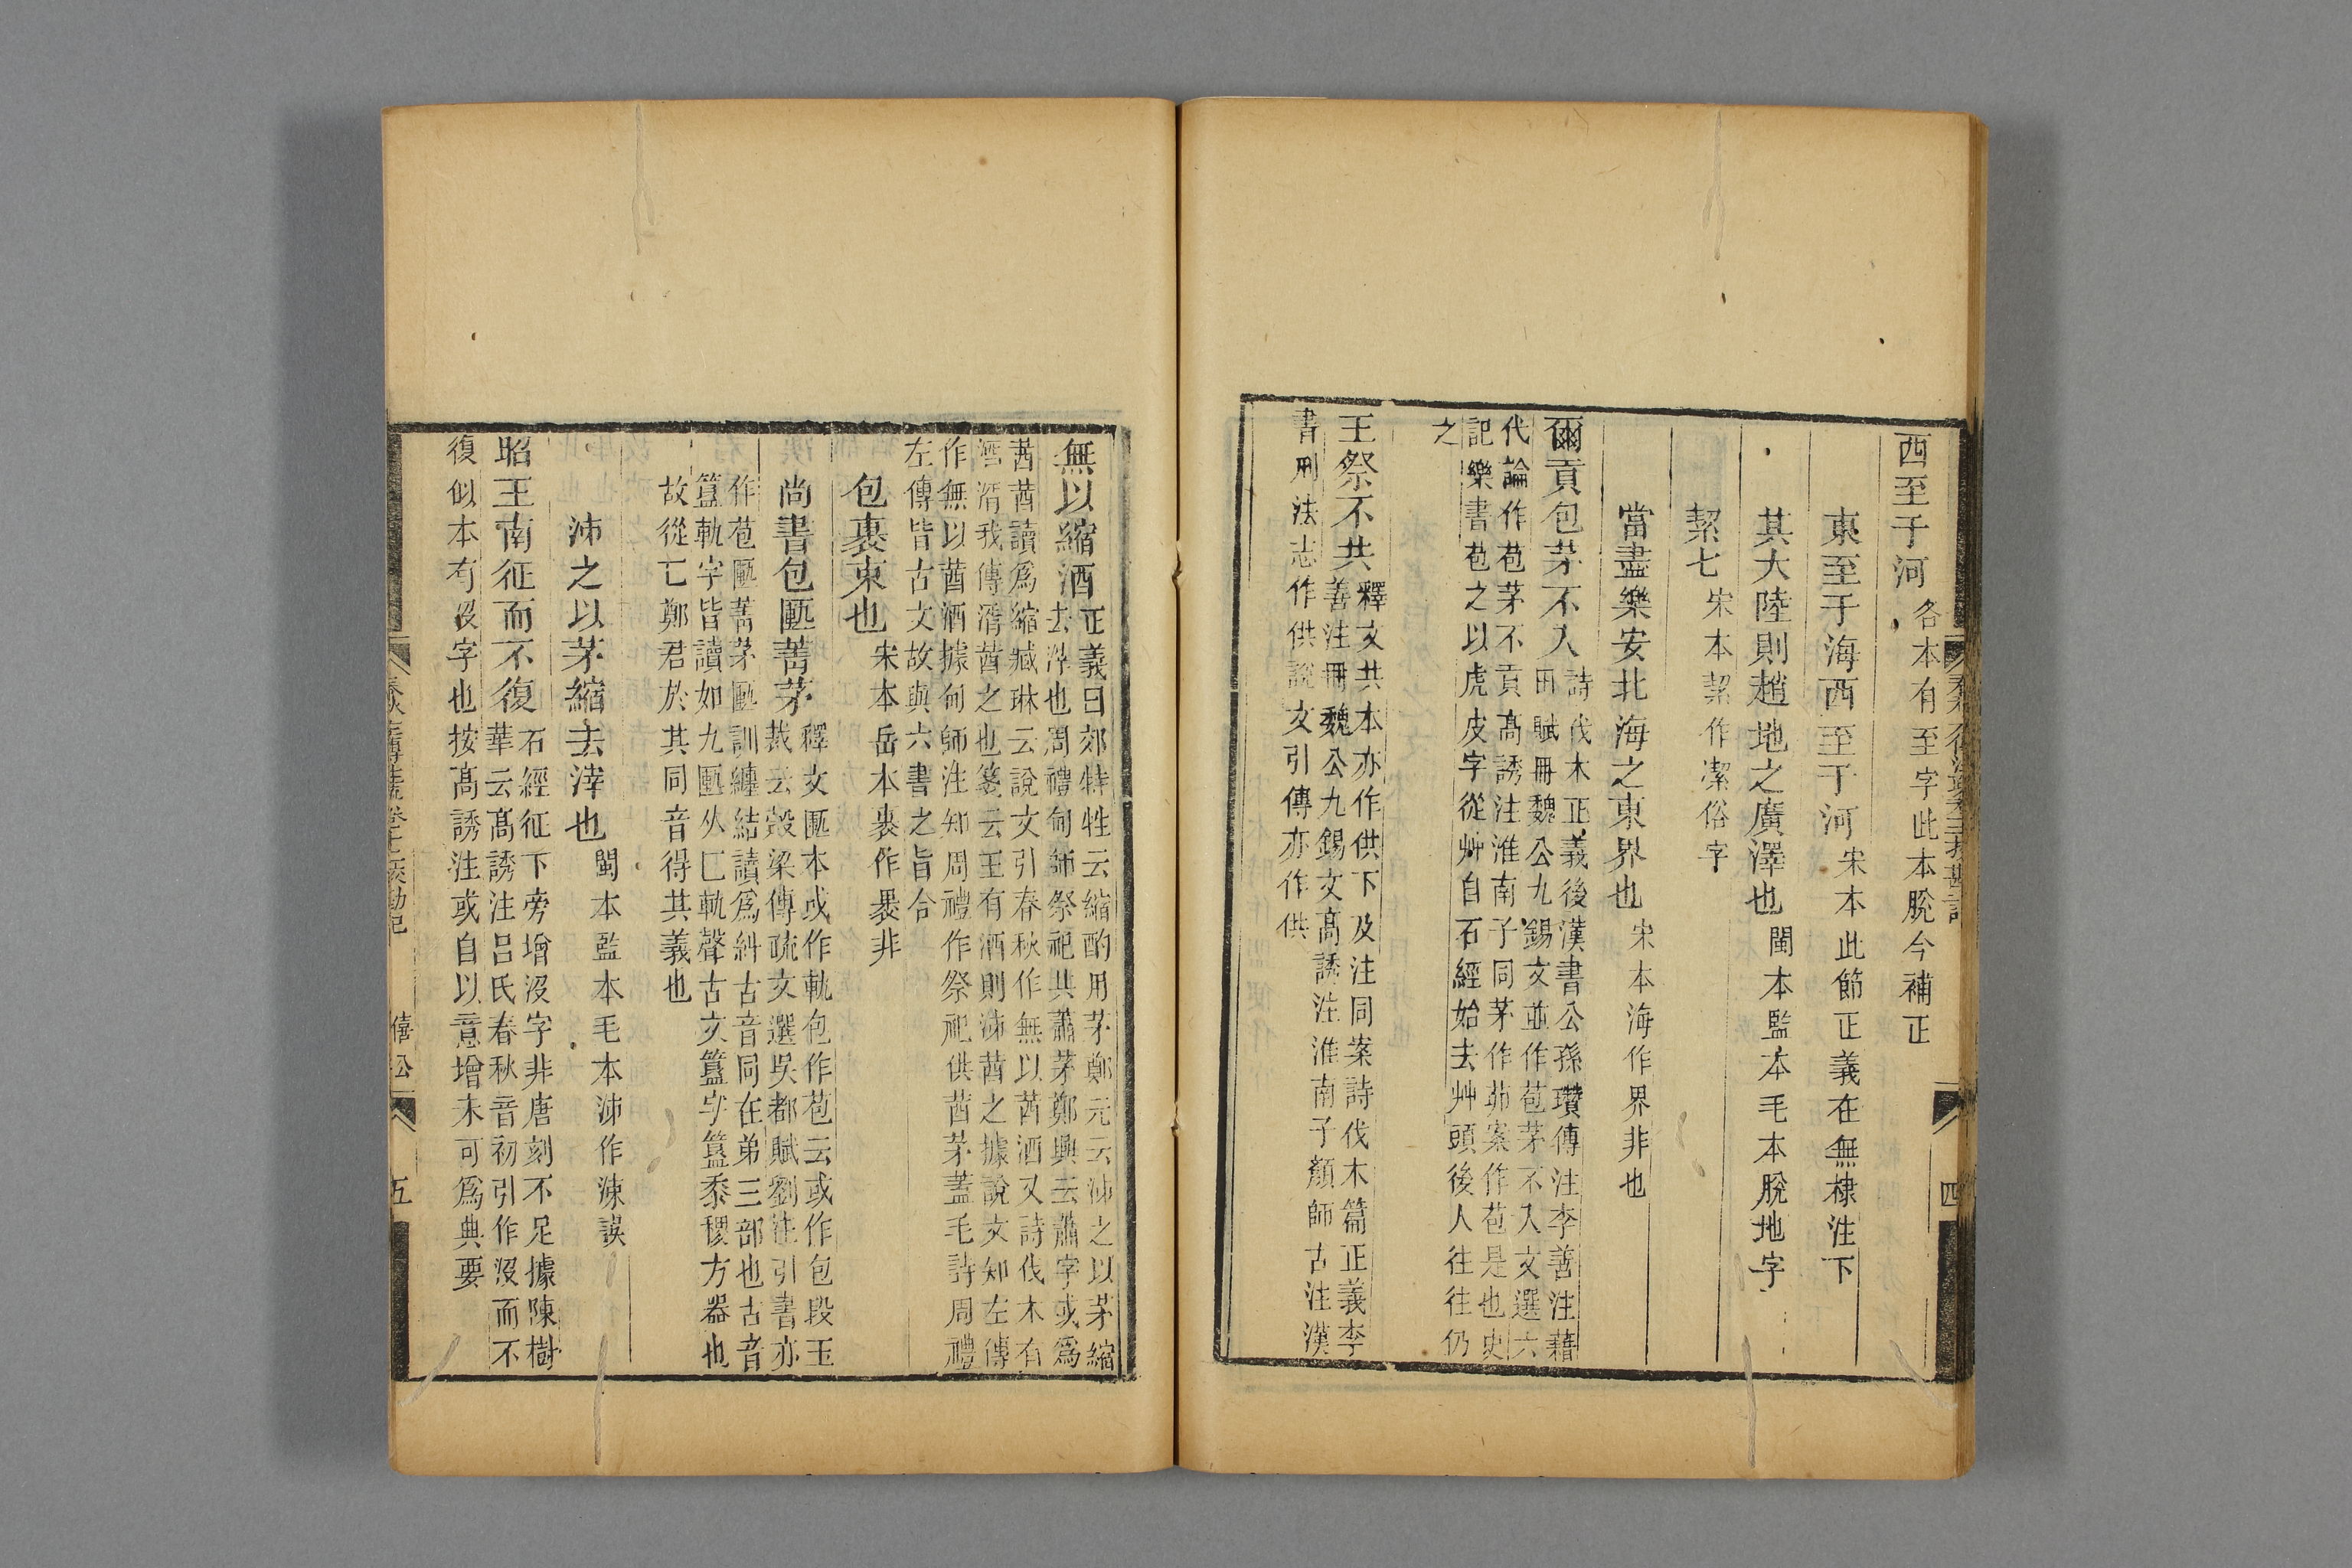 西至于河各本有至字此本脫今補正
東至于海西至于河宋本此節正義在無棣注下
其大陸則趙地之廣澤也閩本監本毛本脫地字
絜七宋本絜作潔俗字
當盡樂安北海之東界也宋本海作界非也
爾貢包茅不入詩伐木正義後漢書公孫瓚傳注李善注藉
田賦冊魏公九錫文並作苞茅不入文選六
代論作苞茅不貢高誘注淮南子同茅作茆案作苞是也史
記樂書苞之以虎皮字從艸自石經始去艸頭後人往往仍
之
王祭不共釋文共本亦作供下及注同案詩伐木篇正義李
善注冊魏公九錫文高誘注淮南子顏師古注漢
書刑法志作供說文引傳亦作供
四
無以縮酒正義曰郊特牲云縮酌用茅鄭元云泲之以茅縮
去滓也周禮甸師祭祀共蕭茅鄭興云蕭字或爲
莤莤讀爲縮臧琳云說文引春秋作無以莤酒又詩伐木有
酒湑我傳湑莤之也箋云王有酒則泲莤之據說文知左傳
作無以莤酒據甸師注知周禮作祭祀供莤茅蓋毛詩周禮
左傳皆古文故與六書之旨合
包裹束也宋本岳本裹作褁非
尚書包匭菁茅釋文匭本或作軌包作苞云或作包段玉
裁云穀梁傳疏文選吳都賦劉注引書亦
作苞匭菁茅匭訓纏結讀爲糾古音同在弟三部也古音
簋軌字皆讀如九匭从匚軌聲古文簋字簋黍稷方器也
故從匚鄭君於其同音得其義也
泲之以茅縮去滓也閩本監本毛本泲作涑誤
昭王南征而不復石經征下旁增沒字非唐刻不足據陳樹
華云高誘注呂氏春秋音初引作沒而不
復似本有沒字也按高誘注或自以意增未可爲典要
僖公
五